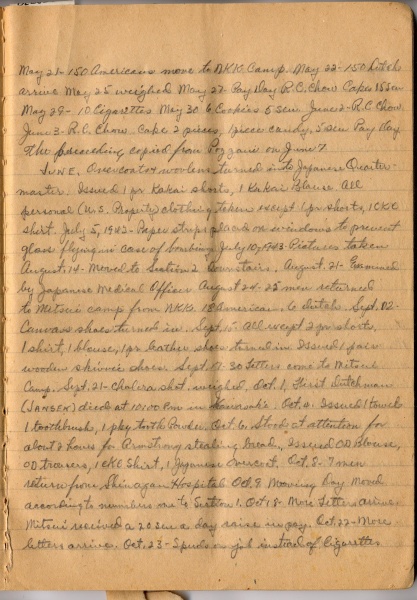 May 21-150 Americans move to NKK Camp. May 22-150 Dutch
arrive May 25 weighed May 27- Pay Day R.C. Chow Cake 15 Sen
May 29- 10 Cigarettes May 30 6 Cookies 5 sen June 2- R.C. Chow
June 3- R.C. Chow Cake 2 pieces, 1 piece candy, 5 sen Pay Day
The preceeding copied from Pozzanie on June 7
JUNE. Overcoat & woolens turned in to Japanese Quarter-
master. Issued 1 pr Kakai shorts, 1 Kakai Blouse. All
personal (U.S. Property) clothing taken except 1 pr shorts, 1 CKC
shirt. July 5, 1943- Paper strips placed on windows to prevent
glass flying in case of bombing. July 10, 1943- Pictures taken
August 14- Moved to Section 2 downstairs. August 21- Examined
by Japanese Medical Officer August 24- 25 men returned
to Mitsui camp from NKK 18 American, 6 Dutch. Sept. 02-
Canvas shoes turned in. Sept. 15 All except 2 pr shorts,
1 shirt, 1 blouse, 1 pr leather shoes turned in Issued 1 pair
wooden shoes. Sept. 30 letters come to Mitsui
Camp. Sept. 21- Cholera shot. weighed. Oct. 1, First Dutchman
(JANSEK) died at 10:00 Pm in. Oct. 4. Issued 1 towel
1 toothbrush, 1 pkg tooth Powder. Oct. 6. Stood at attention for
about 2 hours for Armstrong stealing bread, Issued OD Blouse,
OD trousers, 1 CKC Shirt, 1 Japanese Overcoat. Oct. 8- 7 men
return from Shinagan Hospital Oct. 9 Mooving Day Moved
according to numbers me to Section 1. Oct 18- More Letters arrive.
Mitsui received a 20 sen a day raise in pay. Oct 22- More
letters arrive. Oct. 23- Spuds on job instead of Cigarettes